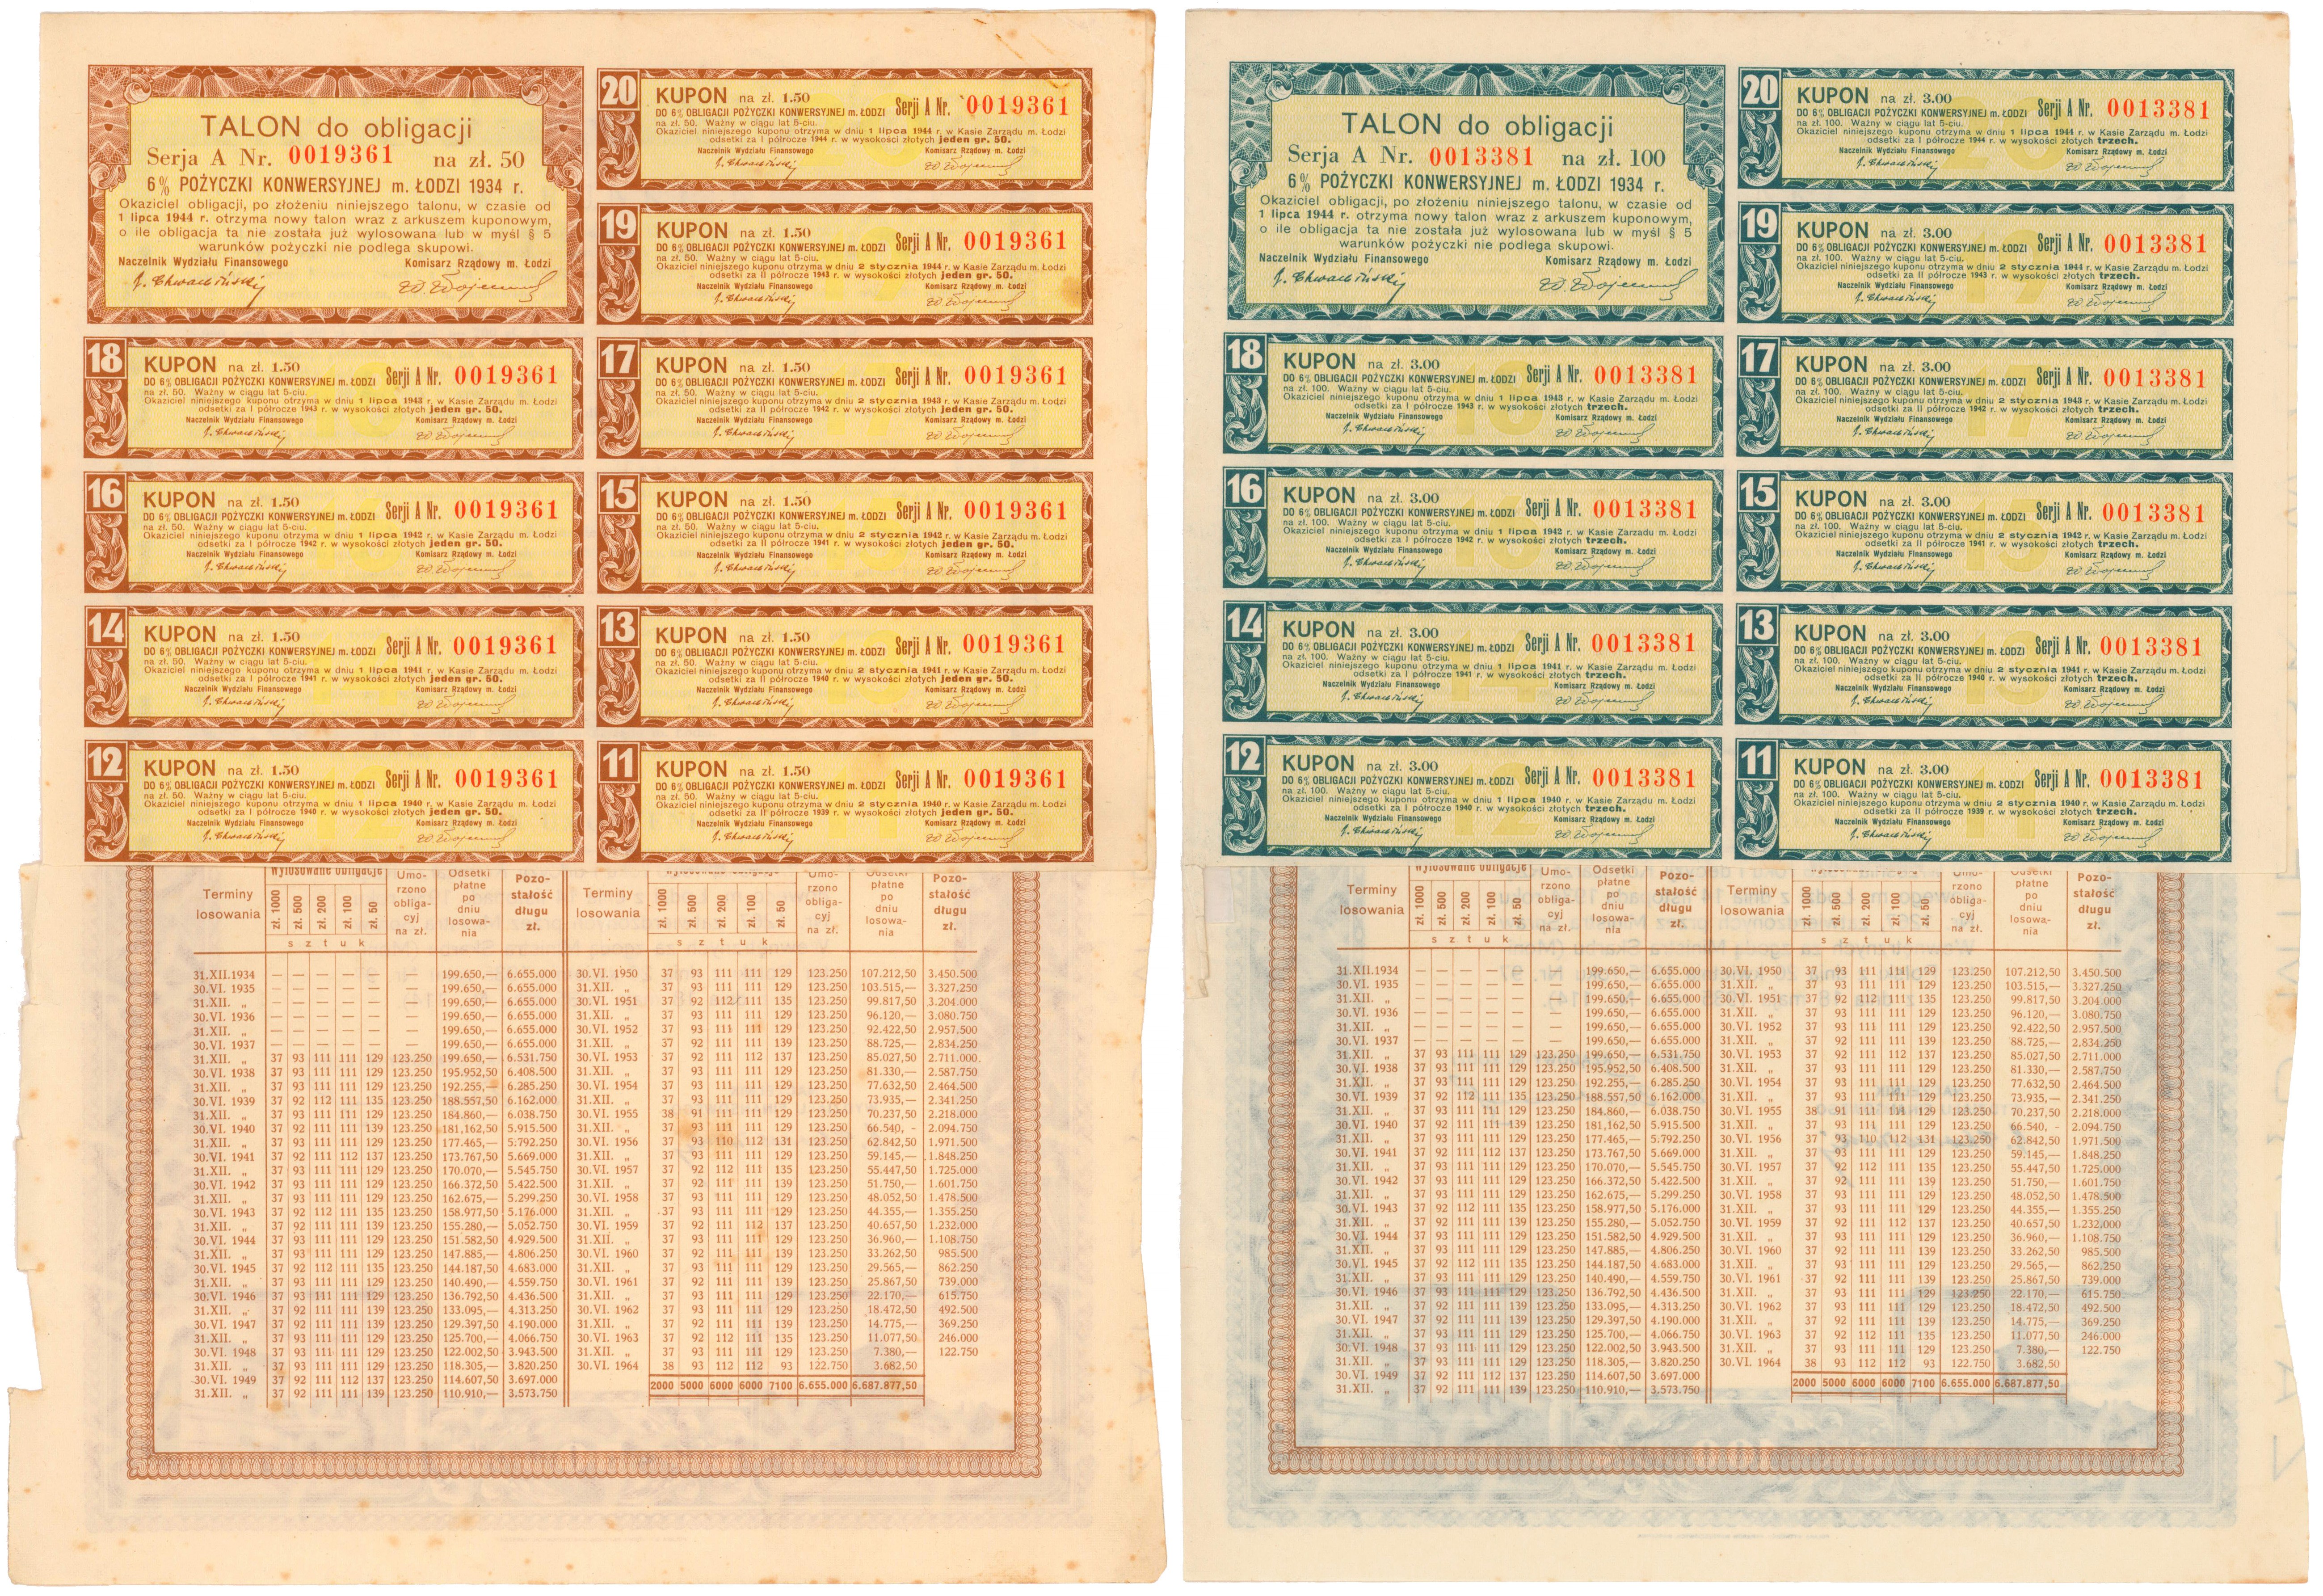 TALON do obligacji
Serja A Nr. 0019361 na zł. 50
6% POŻYCZKI KONWERSYJNEJ m. ŁODZI 1934 r.
Okaziciel obligacji, po złożeniu niniejszego talonu, w czasie od
1 lipca 1944 r. otrzyma nowy talon wraz z arkuszem kuponowym,
o ile obligacja ta nie została już wylosowana lub w myśl § 5
warunków pożyczki nie podlega skupowi.
Naczelnik Wydziału Finansowego Komisarz Rządowy m. Łodzi
20 KUPON na zł. 1.50 Serji A Nr. 0019361
DO 6% OBLIGACJI POŻYCZKI KONWERSYJNEJ m. ŁODZI
na zł. 50. Ważny w ciągu lat 5-ciu.
Okaziciel niniejszego kuponu otrzyma w dniu 1 lipca 1944 r. w Kasie Zarządu m. Łodzi
odsetki za I półrocze 1944 r. w wysokości złotych jeden gr. 50.
Naczelnik Wydziału Finansowego Komisarz Rządowy m. Łodzi
19 KUPON na zł. 1.50 Serji A Nr. 0019361
DO 6% OBLIGACJI POŻYCZKI KONWERSYJNEJ m. ŁODZI
na zł. 50. Ważny w ciągu lat 5-ciu.
Okaziciel niniejszego kuponu otrzyma w dniu 2 stycznia 1944 r. w Kasie Zarządu m. Łodzi
odsetki za II półrocze 1943 r. w wysokości złotych jeden gr. 50.
Naczelnik Wydziału Finansowego Komisarz Rządowy m. Łodzi
18 KUPON na zł. 1.50 Serji A Nr. 0019361
DO 6% OBLIGACJI POŻYCZKI KONWERSYJNEJ m. ŁODZI
na zł. 50. Ważny w ciągu lat 5-ciu.
Okaziciel niniejszego kuponu otrzyma w dniu 1 lipca 1943 r. w Kasie Zarządu m. Łodzi
odsetki za I półrocze 1943 r. w wysokości złotych jeden gr. 50.
Naczelnik Wydziału Finansowego Komisarz Rządowy m. Łodzi
17 KUPON na zł. 1.50 Serji A Nr. 0019361
DO 6% OBLIGACJI POŻYCZKI KONWERSYJNEJ m. ŁODZI
na zł. 50. Ważny w ciągu lat 5-ciu.
Okaziciel niniejszego kuponu otrzyma w dniu 2 stycznia 1943 r. w Kasie Zarządu m. Łodzi
odsetki za II półrocze 1942 r. w wysokości złotych jeden gr. 50.
Naczelnik Wydziału Finansowego Komisarz Rządowy m. Łodzi
16 KUPON na zł. 1.50 Serji A Nr. 0019361
DO 6% OBLIGACJI POŻYCZKI KONWERSYJNEJ m. ŁODZI
na zł. 50. Ważny w ciągu lat 5-ciu.
Okaziciel niniejszego kuponu otrzyma w dniu 1 lipca 1942 r. w Kasie Zarządu m. Łodzi
odsetki za I półrocze 1942 r. w wysokości złotych jeden gr. 50.
Naczelnik Wydziału Finansowego Komisarz Rządowy m. Łodzi
15 KUPON na zł. 1.50 Serji A Nr. 0019361
DO 6% OBLIGACJI POŻYCZKI KONWERSYJNEJ m. ŁODZI
na zł. 50. Ważny w ciągu lat 5-ciu.
Okaziciel niniejszego kuponu otrzyma w dniu 2 stycznia 1942 r. w Kasie Zarządu m. Łodzi
odsetki za II półrocze 1941 r. w wysokości złotych jeden gr. 50.
Naczelnik Wydziału Finansowego Komisarz Rządowy m. Łodzi
14 KUPON na zł. 1.50 Serji A Nr. 0019361
DO 6% OBLIGACJI POŻYCZKI KONWERSYJNEJ m. ŁODZI
na zł. 50. Ważny w ciągu lat 5-ciu.
Okaziciel niniejszego kuponu otrzyma w dniu 1 lipca 1941 r. w Kasie Zarządu m. Łodzi
odsetki za I półrocze 1941 r. w wysokości złotych jeden gr. 50.
Naczelnik Wydziału Finansowego Komisarz Rządowy m. Łodzi
13 KUPON na zł. 1.50 Serji A Nr. 0019361
DO 6% OBLIGACJI POŻYCZKI KONWERSYJNEJ m. ŁODZI
na zł. 50. Ważny w ciągu lat 5-ciu.
Okaziciel niniejszego kuponu otrzyma w dniu 2 stycznia 1941 r. w Kasie Zarządu m. Łodzi
odsetki za II półrocze 1940 r. w wysokości złotych jeden gr. 50.
Naczelnik Wydziału Finansowego Komisarz Rządowy m. Łodzi
12 KUPON na zł. 1.50 Serji A Nr. 0019361
DO 6% OBLIGACJI POŻYCZKI KONWERSYJNEJ m. ŁODZI
na zł. 50. Ważny w ciągu lat 5-ciu.
Okaziciel niniejszego kuponu otrzyma w dniu 1 lipca 1940 r. w Kasie Zarządu m. Łodzi
odsetki za I półrocze 1940 r. w wysokości złotych jeden gr. 50.
Naczelnik Wydziału Finansowego Komisarz Rządowy m. Łodzi
11 KUPON na zł. 1.50 Serji A Nr. 0019361
DO 6% OBLIGACJI POŻYCZKI KONWERSYJNEJ m. ŁODZI
na zł. 50. Ważny w ciągu lat 5-ciu.
Okaziciel niniejszego kuponu otrzyma w dniu 2 stycznia 1940 r. w Kasie Zarządu m. Łodzi
odsetki za II półrocze 1939 r. w wysokości złotych jeden gr. 50.
Naczelnik Wydziału Finansowego Komisarz Rządowy m. Łodzi
Terminy losowania Wylosowane obligacje zł. 1000 zł. 500 zł. 200 zł. 100 zł. 50 sztuk Umorzono obligacyj na zł. Odsetki płatne po dniu losowania Pozostałość długu zł.
Terminy losowania zł. 1000 zł. 500 zł. 200 zł. 100 zł. 50 sztuk Umorzono obligacyj na zł. Odsetki płatne po dniu losowania Pozostałość długu zł.
31.XII.1934 — — — — — — 199.650,— 6.655.000 30.VI. 1950 37 93 111 111 129 123.250 107.212,50 3.450.500
30.VI. 1935 — — — — — — 199.650,— 6.655.000 31.XII. „ 37 93 111 111 129 123.250 103.515,— 3.327.250
31.XII. „ — — — — — — 199.650,— 6.655.000 30.VI. 1951 37 92 112 111 135 123.250 99.817,50 3.204.000
30.VI. 1936 — — — — — — 199.650,— 6.655.000 31.XII. „ 37 93 111 111 129 123.250 96.120,— 3.080.750
31.XII. „ — — — — — — 199.650,— 6.655.000 30.VI. 1952 37 93 111 111 129 123.250 92.422,50 2.957.500
30.VI. 1937 — — — — — — 199.650,— 6.655.000 31.XII. „ 37 92 111 111 139 123.250 88.725,— 2.834.250
31.XII. „ 37 93 111 111 129 123.250 199.650,— 6.531.750 30.VI. 1953 37 92 111 112 137 123.250 85.027,50 2.711.000
30.VI. 1938 37 93 111 111 129 123.250 195.952,50 6.408.500 31.XII. „ 37 93 111 111 129 123.250 81.330,— 2.587.750
31.XII. „ 37 93 111 111 129 123.250 192.255,— 6.285.250 30.VI. 1954 37 93 111 111 129 123.250 77.632,50 2.464.500
30.VI. 1939 37 92 112 111 135 123.250 188.557,50 6.162.000 31.XII. „ 37 93 111 111 129 123.250 73.935,— 2.341.250
31.XII. „ 37 93 111 111 129 123.250 184.860,— 6.038.750 30.VI. 1955 38 91 111 111 129 123.250 70.237,50 2.218.000
30.VI. 1940 37 92 111 111 139 123.250 181,162,50 5.915.500 31.XII. „ 37 93 111 111 129 123.250 66.540, - 2.094.750
31.XII. „ 37 93 111 111 129 123.250 177.465,— 5.792.250 30.VI. 1956 37 93 110 112 131 123.250 62.842,50 1.971.500
30.VI. 1941 37 92 111 112 137 123.250 173.767,50 5.669.000 31.XII. „ 37 93 111 111 129 123.250 59.145,— 1.848.250
31.XII. „ 37 93 111 111 129 123.250 170.070,— 5.545.750 30.VI. 1957 37 92 112 111 135 123.250 55.447,50 1.725.000
30.VI. 1942 37 93 111 111 129 123.250 166.372,50 5.422.500 31.XII. „ 37 92 111 111 139 123.250 51.750,— 1.601.750
31.XII. „ 37 93 111 111 129 123.250 162.675,— 5.299.250 30.VI. 1958 37 93 111 111 129 123.250 48.052,50 1.478.500
30.VI. 1943 37 92 112 111 135 123.250 158.977,50 5.176.000 31.XII. „ 37 93 111 111 129 123.250 44.355,— 1.355.250
31.XII. „ 37 92 111 111 139 123.250 155.280,— 5.052.750 30.VI. 1959 37 92 111 112 137 123.250 40.657,50 1.232.000
30.VI. 1944 37 93 111 111 129 123.250 151.582,50 4.929.500 31.XII. „ 37 93 111 111 129 123.250 36.960,— 1.108.750
31.XII. „ 37 93 111 111 129 123.250 147.885,— 4.806.250 30.VI. 1960 37 92 111 111 139 123.250 33.262,50 985.500
30.VI. 1945 37 92 112 111 135 123.250 144.187,50 4.683.000 31.XII. „ 37 93 111 111 129 123.250 29.565,— 862.250
31.XII. „ 37 93 111 111 129 123.250 140.490,— 4.559.750 30.VI. 1961 37 92 111 111 139 123.250 25.867,50 739.000
30.VI. 1946 37 93 111 111 129 123.250 136.792,50 4.436.500 31.XII. „ 37 93 111 111 129 123.250 22.170,— 615.750
31.XII. „ 37 92 111 111 139 123.250 133.095,— 4.313.250 30.VI. 1962 37 93 111 111 129 123.250 18.472,50 492.500
30.VI. 1947 37 92 111 111 139 123.250 129.397,50 4.190.000 31.XII. „ 37 92 111 111 139 123.250 14.775,— 369.250
31.XII. „ 37 93 111 111 129 123.250 125.700,— 4.066.750 30.VI. 1963 37 92 112 111 135 123.250 11.077,50 246.000
30.VI. 1948 37 93 111 111 129 123.250 122.002,50 3.943.500 31.XII. „ 37 93 111 111 129 123.250 7.380,— 122.750
31.XII. „ 37 93 111 111 129 123.250 118.305,— 3.820.250 30.VI. 1964 38 93 112 112 93 122.750 3.682,50
30.VI. 1949 37 92 111 112 137 123.250 114.607,50 3.697.000
2000 5000 6000 6000 7100 6.655.000 6.687.877,50
31.XII. „ 37 92 111 111 139 123.250 110.910,— 3.573.750
TALON do obligacji
Serja A Nr. 0013381 na zł. 100
6% POŻYCZKI KONWERSYJNEJ m. ŁODZI 1934 r.
Okaziciel obligacji, po złożeniu niniejszego talonu, w czasie od
1 lipca 1944 r. otrzyma nowy talon wraz z arkuszem kuponowym,
o ile obligacja ta nie została już wylosowana lub w myśl § 5
warunków pożyczki nie podlega skupowi.
Naczelnik Wydziału Finansowego Komisarz Rządowy m. Łodzi
20 KUPON na zł. 3.00 Serji A Nr. 0013381
DO 6% OBLIGACJI POŻYCZKI KONWERSYJNEJ m. ŁODZI
na zł. 100. Ważny w ciągu lat 5-ciu.
Okaziciel niniejszego kuponu otrzyma w dniu 1 lipca 1944 r. w Kasie Zarządu m. Łodzi
odsetki za I półrocze 1944 r. w wysokości złotych trzech.
Naczelnik Wydziału Finansowego Komisarz Rządowy m. Łodzi
19 KUPON na zł. 3.00 Serji A Nr. 0013381
DO 6% OBLIGACJI POŻYCZKI KONWERSYJNEJ m. ŁODZI
na zł. 100. Ważny w ciągu lat 5-ciu.
Okaziciel niniejszego kuponu otrzyma w dniu 2 stycznia 1944 r. w Kasie Zarządu m. Łodzi
odsetki za II półrocze 1943 r. w wysokości złotych trzech.
Naczelnik Wydziału Finansowego Komisarz Rządowy m. Łodzi
18 KUPON na zł. 3.00 Serji A Nr. 0013381
DO 6% OBLIGACJI POŻYCZKI KONWERSYJNEJ m. ŁODZI
na zł. 100. Ważny w ciągu lat 5-ciu.
Okaziciel niniejszego kuponu otrzyma w dniu 1 lipca 1943 r. w Kasie Zarządu m. Łodzi
odsetki za I półrocze 1943 r. w wysokości złotych trzech.
Naczelnik Wydziału Finansowego Komisarz Rządowy m. Łodzi
17 KUPON na zł. 3.00 Serji A Nr. 0013381
DO 6% OBLIGACJI POŻYCZKI KONWERSYJNEJ m. ŁODZI
na zł. 100. Ważny w ciągu lat 5-ciu.
Okaziciel niniejszego kuponu otrzyma w dniu 2 stycznia 1943 r. w Kasie Zarządu m. Łodzi
odsetki za II półrocze 1942 r. w wysokości złotych trzech.
Naczelnik Wydziału Finansowego Komisarz Rządowy m. Łodzi
16 KUPON na zł. 3.00 Serji A Nr. 0013381
DO 6% OBLIGACJI POŻYCZKI KONWERSYJNEJ m. ŁODZI
na zł. 100. Ważny w ciągu lat 5-ciu.
Okaziciel niniejszego kuponu otrzyma w dniu 1 lipca 1942 r. w Kasie Zarządu m. Łodzi
odsetki za I półrocze 1942 r. w wysokości złotych trzech.
Naczelnik Wydziału Finansowego Komisarz Rządowy m. Łodzi
15 KUPON na zł. 3.00 Serji A Nr. 0013381
DO 6% OBLIGACJI POŻYCZKI KONWERSYJNEJ m. ŁODZI
na zł. 100. Ważny w ciągu lat 5-ciu.
Okaziciel niniejszego kuponu otrzyma w dniu 2 stycznia 1942 r. w Kasie Zarządu m. Łodzi
odsetki za II półrocze 1941 r. w wysokości złotych trzech.
Naczelnik Wydziału Finansowego Komisarz Rządowy m. Łodzi
14 KUPON na zł. 3.00 Serji A Nr. 0013381
DO 6% OBLIGACJI POŻYCZKI KONWERSYJNEJ m. ŁODZI
na zł. 100. Ważny w ciągu lat 5-ciu.
Okaziciel niniejszego kuponu otrzyma w dniu 1 lipca 1941 r. w Kasie Zarządu m. Łodzi
odsetki za I półrocze 1941 r. w wysokości złotych trzech.
Naczelnik Wydziału Finansowego Komisarz Rządowy m. Łodzi
13 KUPON na zł. 3.00 Serji A Nr. 0013381
DO 6% OBLIGACJI POŻYCZKI KONWERSYJNEJ m. ŁODZI
na zł. 100. Ważny w ciągu lat 5-ciu.
Okaziciel niniejszego kuponu otrzyma w dniu 2 stycznia 1941 r. w Kasie Zarządu m. Łodzi
odsetki za II półrocze 1940 r. w wysokości złotych trzech.
Naczelnik Wydziału Finansowego Komisarz Rządowy m. Łodzi
12 KUPON na zł. 3.00 Serji A Nr. 0013381
DO 6% OBLIGACJI POŻYCZKI KONWERSYJNEJ m. ŁODZI
na zł. 100. Ważny w ciągu lat 5-ciu.
Okaziciel niniejszego kuponu otrzyma w dniu 1 lipca 1940 r. w Kasie Zarządu m. Łodzi
odsetki za I półrocze 1940 r. w wysokości złotych trzech.
Naczelnik Wydziału Finansowego Komisarz Rządowy m. Łodzi
11 KUPON na zł. 3.00 Serji A Nr. 0013381
DO 6% OBLIGACJI POŻYCZKI KONWERSYJNEJ m. ŁODZI
na zł. 100. Ważny w ciągu lat 5-ciu.
Okaziciel niniejszego kuponu otrzyma w dniu 2 stycznia 1940 r. w Kasie Zarządu m. Łodzi
odsetki za II półrocze 1939 r. w wysokości złotych trzech.
Naczelnik Wydziału Finansowego Komisarz Rządowy m. Łodzi
Terminy losowania Wylosowane obligacje zł. 1000 zł. 500 zł. 200 zł. 100 zł. 50 sztuk Umorzono obligacyj na zł. Odsetki płatne po dniu losowania Pozostałość długu zł.
Terminy losowania zł. 1000 zł. 500 zł. 200 zł. 100 zł. 50 sztuk Umorzono obligacyj na zł. Odsetki płatne po dniu losowania Pozostałość długu zł.
31.XII.1934 — — — — — — 199.650,— 6.655.000 30.VI. 1950 37 93 111 111 129 123.250 107.212,50 3.450.500
30.VI. 1935 — — — — — — 199.650,— 6.655.000 31.XII. „ 37 93 111 111 129 123.250 103.515,— 3.327.250
31.XII. „ — — — — — — 199.650,— 6.655.000 30.VI. 1951 37 92 112 111 135 123.250 99.817,50 3.204.000
30.VI. 1936 — — — — — — 199.650,— 6.655.000 31.XII. „ 37 93 111 111 129 123.250 96.120,— 3.080.750
31.XII. „ — — — — — — 199.650,— 6.655.000 30.VI. 1952 37 93 111 111 129 123.250 92.422,50 2.957.500
30.VI. 1937 — — — — — — 199.650,— 6.655.000 31.XII. „ 37 92 111 111 139 123.250 88.725,— 2.834.250
31.XII. „ 37 93 111 111 129 123.250 199.650,— 6.531.750 30.VI. 1953 37 92 111 112 137 123.250 85.027,50 2.711.000
30.VI. 1938 37 93 111 111 129 123.250 195.952,50 6.408.500 31.XII. „ 37 93 111 111 129 123.250 81.330,— 2.587.750
31.XII. „ 37 93 111 111 129 123.250 192.255,— 6.285.250 30.VI. 1954 37 93 111 111 129 123.250 77.632,50 2.464.500
30.VI. 1939 37 92 112 111 135 123.250 188.557,50 6.162.000 31.XII. „ 37 93 111 111 129 123.250 73.935,— 2.341.250
31.XII. „ 37 93 111 111 129 123.250 184.860,— 6.038.750 30.VI. 1955 38 91 111 111 129 123.250 70.237,50 2.218.000
30.VI. 1940 37 92 111 111 139 123.250 181,162,50 5.915.500 31.XII. „ 37 93 111 111 129 123.250 66.540, - 2.094.750
31.XII. „ 37 93 111 111 129 123.250 177.465,— 5.792.250 30.VI. 1956 37 93 110 112 131 123.250 62.842,50 1.971.500
30.VI. 1941 37 92 111 112 137 123.250 173.767,50 5.669.000 31.XII. „ 37 93 111 111 129 123.250 59.145,— 1.848.250
31.XII. „ 37 93 111 111 129 123.250 170.070,— 5.545.750 30.VI. 1957 37 92 112 111 135 123.250 55.447,50 1.725.000
30.VI. 1942 37 93 111 111 129 123.250 166.372,50 5.422.500 31.XII. „ 37 92 111 111 139 123.250 51.750,— 1.601.750
31.XII. „ 37 93 111 111 129 123.250 162.675,— 5.299.250 30.VI. 1958 37 93 111 111 129 123.250 48.052,50 1.478.500
30.VI. 1943 37 92 112 111 135 123.250 158.977,50 5.176.000 31.XII. „ 37 93 111 111 129 123.250 44.355,— 1.355.250
31.XII. „ 37 92 111 111 139 123.250 155.280,— 5.052.750 30.VI. 1959 37 92 111 112 137 123.250 40.657,50 1.232.000
30.VI. 1944 37 93 111 111 129 123.250 151.582,50 4.929.500 31.XII. „ 37 93 111 111 129 123.250 36.960,— 1.108.750
31.XII. „ 37 93 111 111 129 123.250 147.885,— 4.806.250 30.VI. 1960 37 92 111 111 139 123.250 33.262,50 985.500
30.VI. 1945 37 92 112 111 135 123.250 144.187,50 4.683.000 31.XII. „ 37 93 111 111 129 123.250 29.565,— 862.250
31.XII. „ 37 93 111 111 129 123.250 140.490,— 4.559.750 30.VI. 1961 37 92 111 111 139 123.250 25.867,50 739.000
30.VI. 1946 37 93 111 111 129 123.250 136.792,50 4.436.500 31.XII. „ 37 93 111 111 129 123.250 22.170,— 615.750
31.XII. „ 37 92 111 111 139 123.250 133.095,— 4.313.250 30.VI. 1962 37 93 111 111 129 123.250 18.472,50 492.500
30.VI. 1947 37 92 111 111 139 123.250 129.397,50 4.190.000 31.XII. „ 37 92 111 111 139 123.250 14.775,— 369.250
31.XII. „ 37 93 111 111 129 123.250 125.700,— 4.066.750 30.VI. 1963 37 92 112 111 135 123.250 11.077,50 246.000
30.VI. 1948 37 93 111 111 129 123.250 122.002,50 3.943.500 31.XII. „ 37 93 111 111 129 123.250 7.380,— 122.750
31.XII. „ 37 93 111 111 129 123.250 118.305,— 3.820.250 30.VI. 1964 38 93 112 112 93 122.750 3.682,50
30.VI. 1949 37 92 111 112 137 123.250 114.607,50 3.697.000
2000 5000 6000 6000 7100 6.655.000 6.687.877,50
31.XII. „ 37 92 111 111 139 123.250 110.910,— 3.573.750